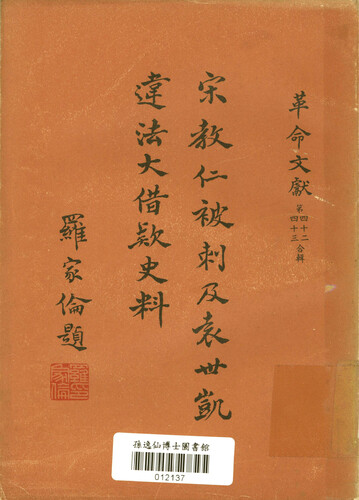 革命文獻
第四十二
四十三合輯
宋教仁被刺及袁世凱
違法大借款史料
羅家倫題
羅家倫
孫逸仙博士圖書館
012137